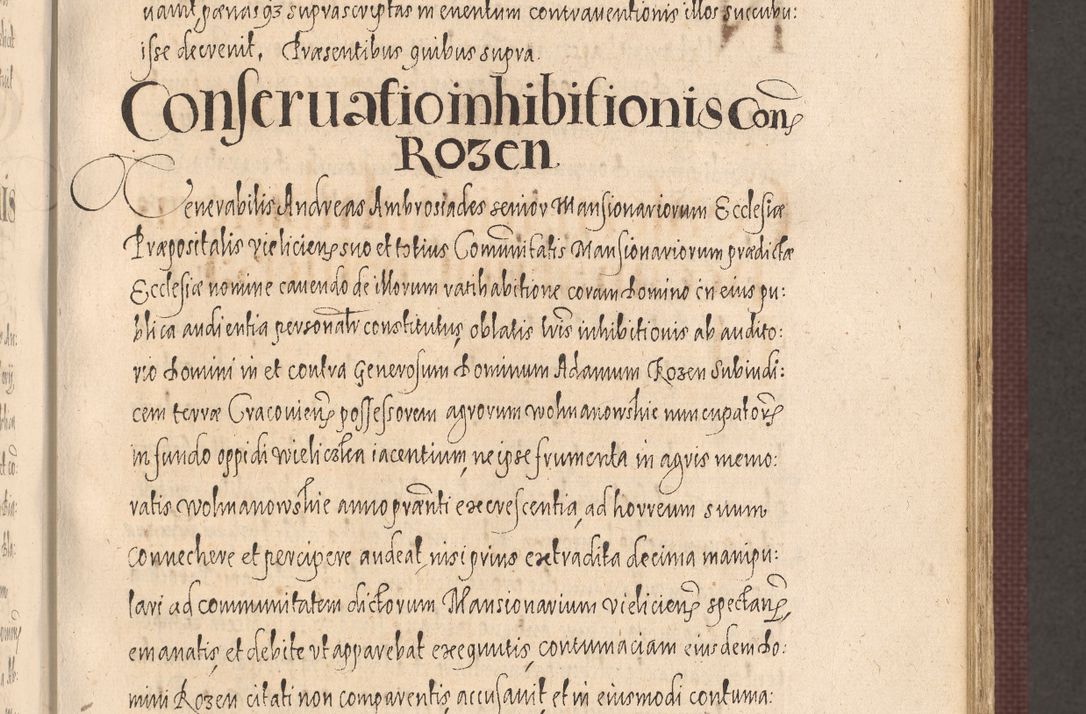 vavit pænasq3 suprascriptas in eventum contraventionis illos succubu:
isse decrevit. Præsentibus quibus supra.
Conseruatio inhibitionis Con
Rozen
Venerabilis Andreas Ambrosiades senior Mansionariorum Ecclesiæ
Præpositalis vielicien suo et totius Comūnitatis Mansionariorum prædictæ
Ecclesiæ nomine cavendo de illorum ratihabitione coram Domino in eius pu:
blica audientia personalr constitutus, oblatis lris inhibitionis ab audito:
rio Domini in et contra Generosum Dominum Adamum Rozen Subiudi:
cem terræ Cracovien possessorem agrorum wolmanowskie nuncupator
in fundo oppidi wieliczka iacentium, ne ipse frumenta in agris memo:
ratis wolmanowskie anno prænti excrescentia, ad horreum suum
convechere et percipere audeat, nisi prius extradita decima manipu:
lari ad communitatem dictorum Mansionarium vielicien spectan,
emanatis, et debite vt apparebat exequutis, contumaciam eiusdem Do:
mini Rozen citati non comparentis, accusavit et in eiusmodi contuma: